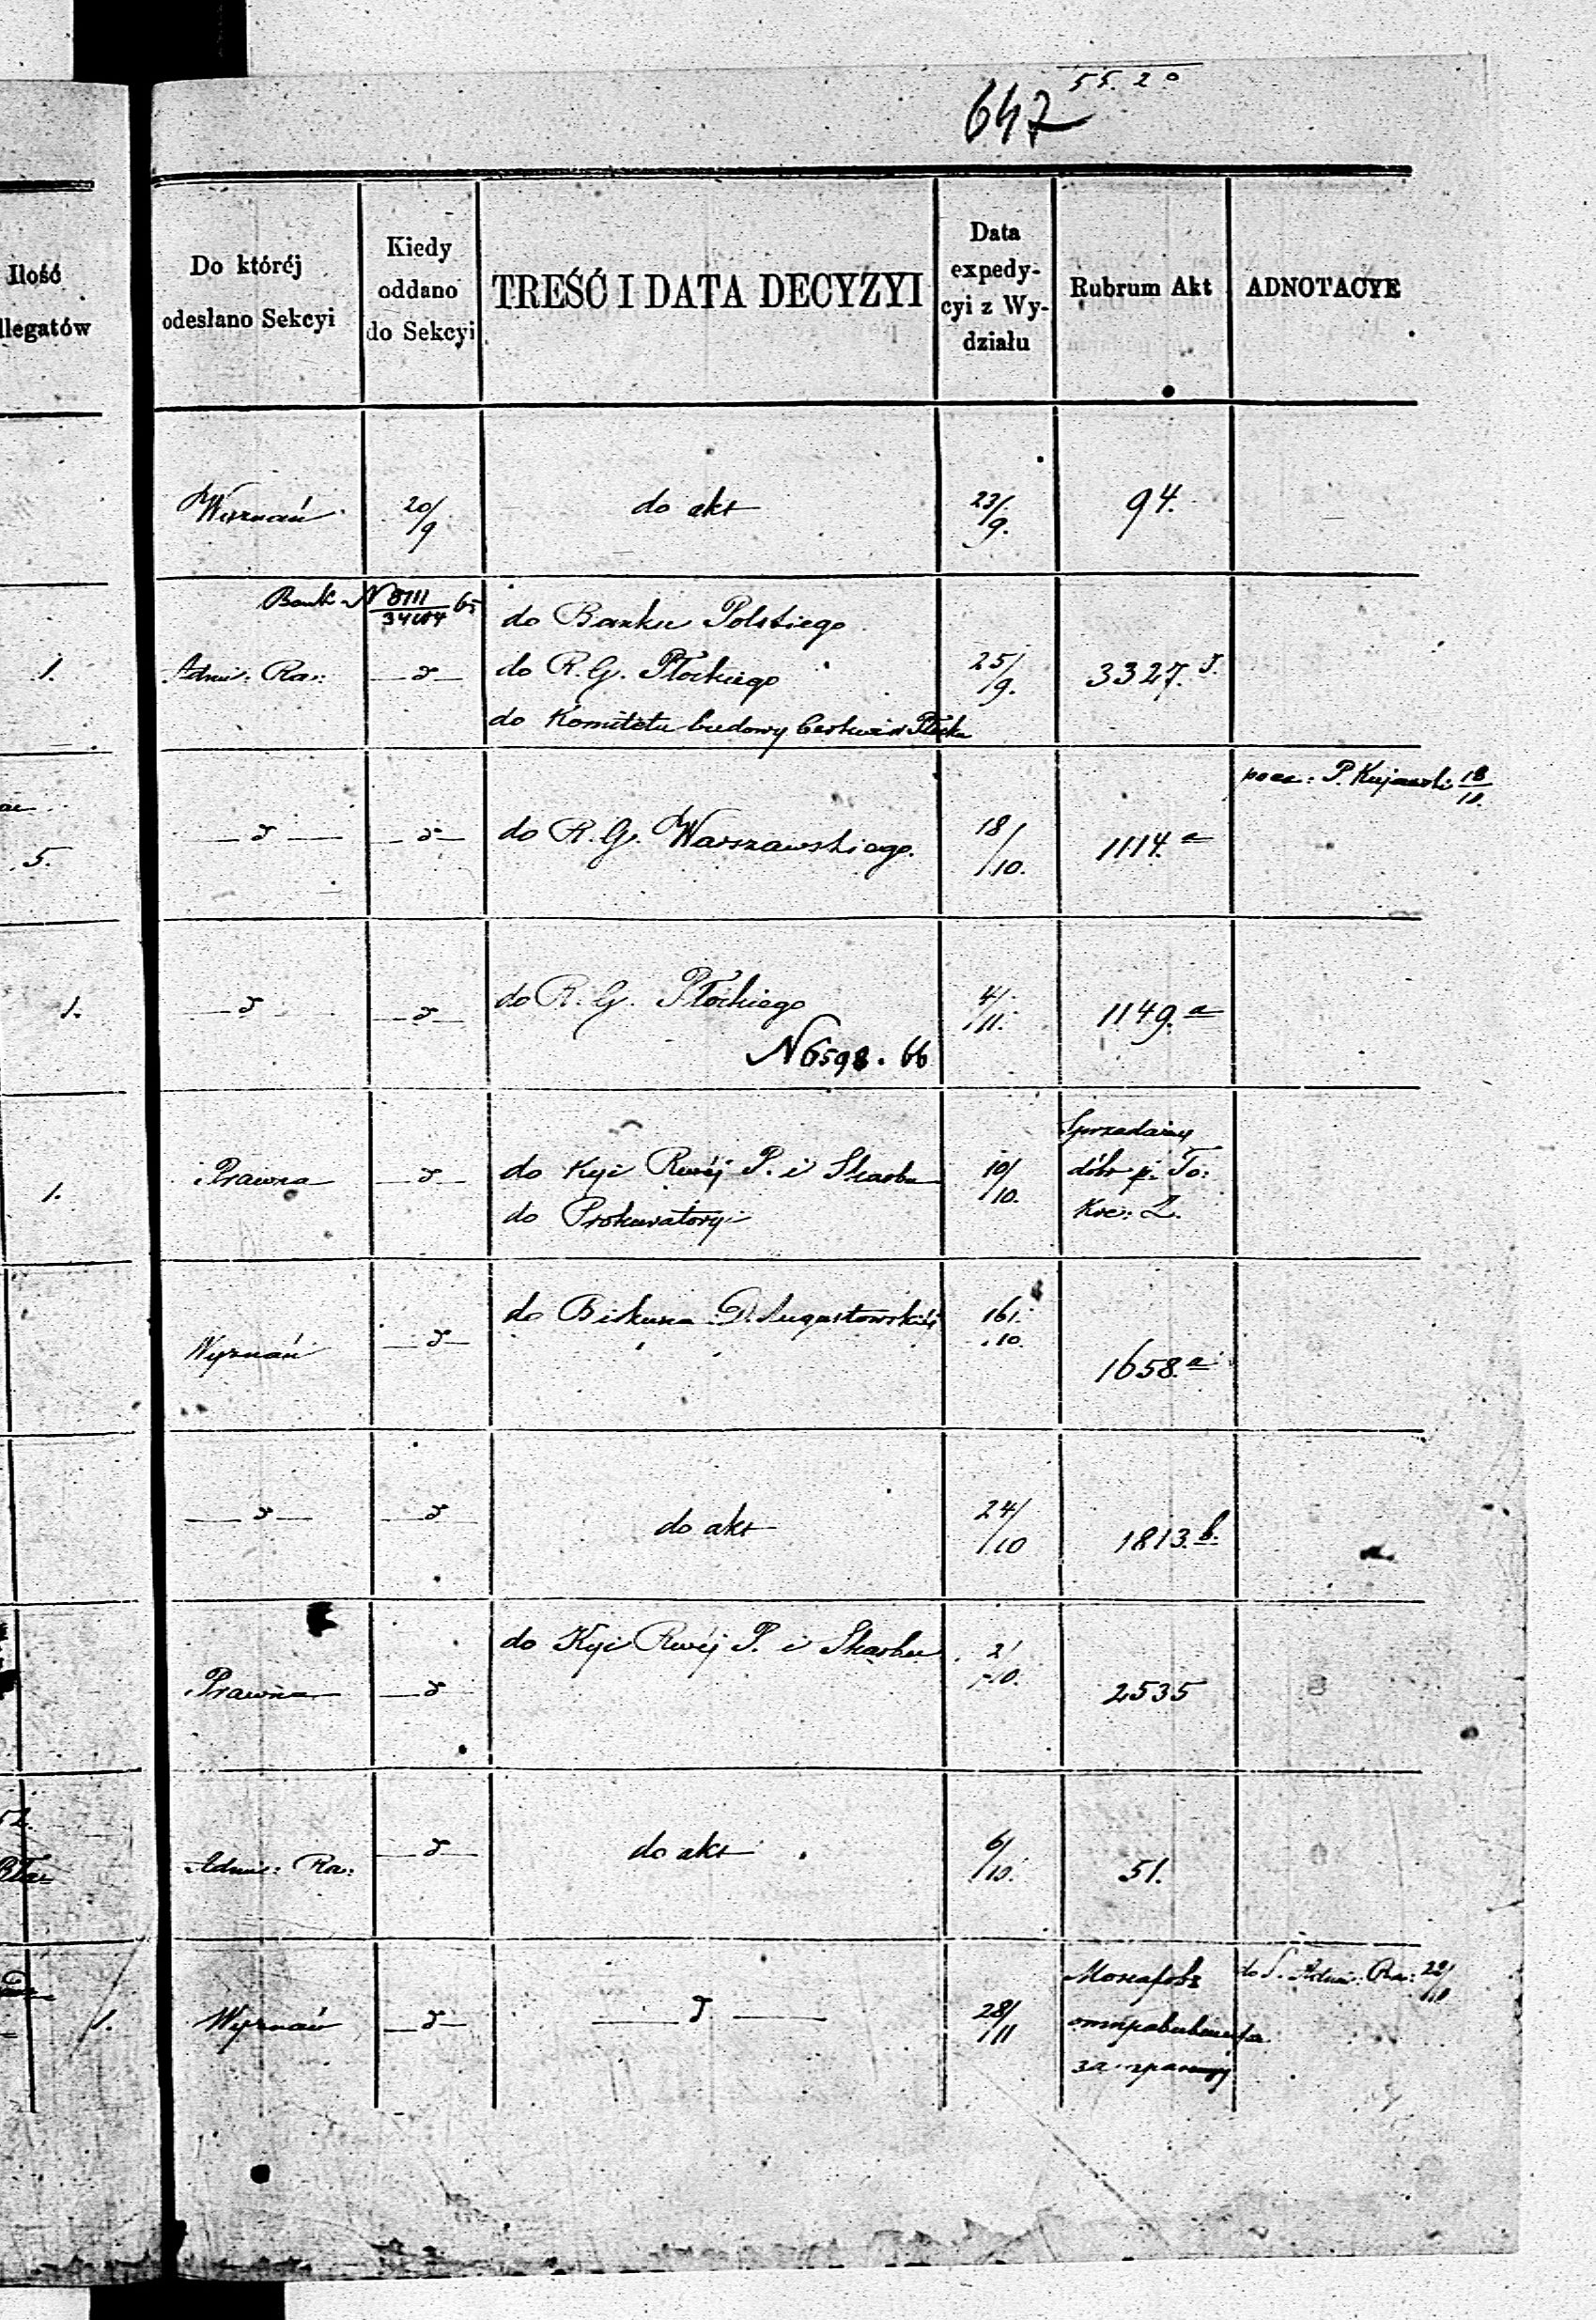 55. 20
647
Ilość
llegatów
Do któréj
odesłano Sekcyi
Kiedy
oddano
do Sekcyi
TREŚĆ I DATA DECYZYI
Data
expedy-
cyi z Wy-
działu
Rubrum Akt
ADNOTACYE
Wyznań 20/9 do akt 23/9. 94.
Bank N 65 do Banku Polskiego
1. Admi: Ra: —d— do R. G. Płockiego 25/9. 3327.
do Komitetu budowy Cerkwi w Płocku
P. Kujawski 18/10.
5. —d— —d— do R. G. Warszawskiego. 18/10. 1114. a
1. —d— —d— do R. G. Płockiego 4/11. 1149. a
N 6598. 66
Sprzedaży
1. Prawna —d— do Kyi Rwéj P. i Skarbu 10/10. dóbr p. To:
do Prokuratoryi Kre: Z.
do Biskupa D. Augustowskiéj 16/10.
Wyznań —d— 1658. a
—d— —d— do akt 24/10 1813. b.
do Kyi Rwéj P. i Skarbu 2/10.
Prawna —d— 2535
52.
Admi: Ra: —d— do akt 6/10. 51.
do S. Admi: Ra: 28/11
1. Wyznań —d— —d— 28/11
за границу